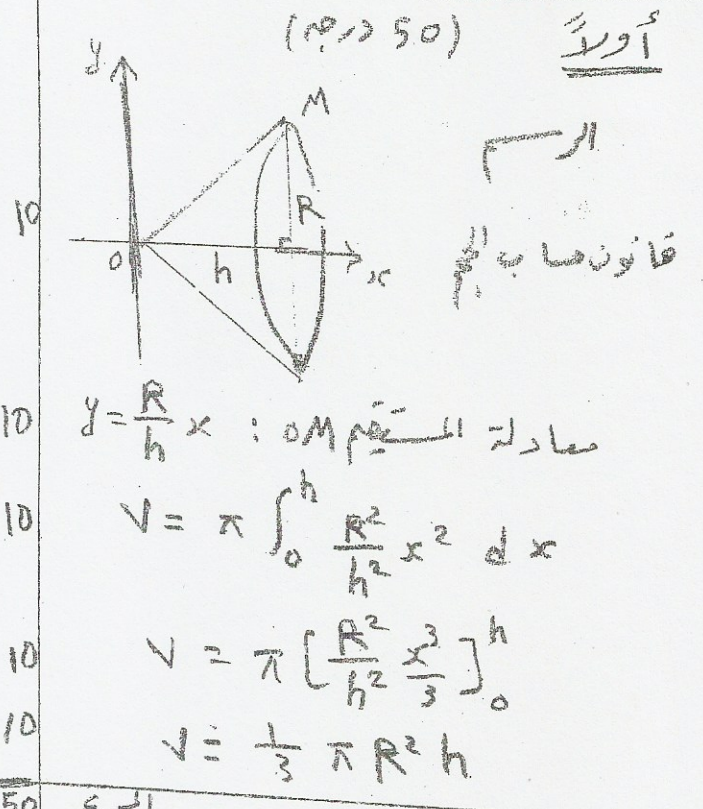 أولاً (50 درجة)
الرسم
y
M
10
R
قانون حساب الحجم
o h x
10 معادلة المستقيم OM : y = \frac{R}{h} x
10 V = π ∫_0^h \frac{R^2}{h^2} x^2 dx
10 V = π [ \frac{R^2}{h^2} \frac{x^3}{3} ]_0^h
10 V = \frac{1}{3} π R^2 h
50